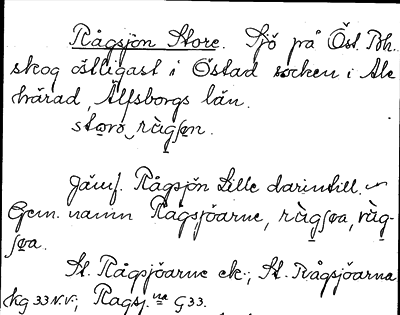 Rågsjön Store. Sjö på Öst. Bh.
skog östligast i Östad socken i Ale
härad, Älfsborgs län.
Jämf. Rågsjön Lille darintill.
Gem. namn Rågsjöarne,
St. Rågsjöarne ek.; St. Rågsjöarna
kg 33 N.V.; Ragsj.na G33.